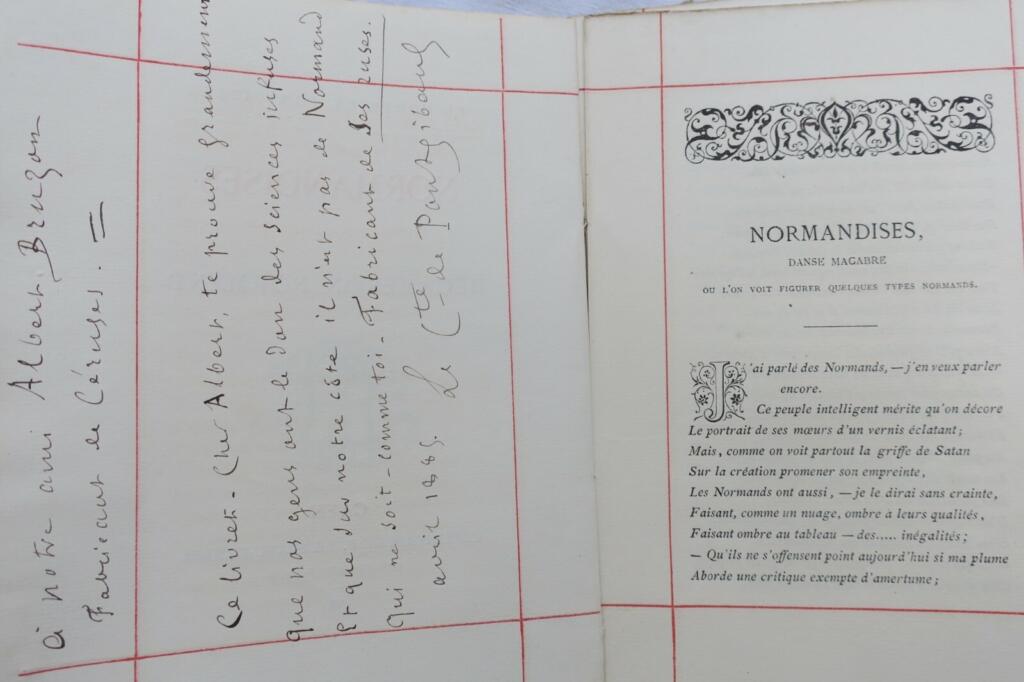 à notre ami Albert Bruzon
Fabricant de Céruses.
Ce livret - Cher Albert, te prouve grandement
que nos gens ont le don des sciences infuses
Et que sur notre côte il n'est pas de Normand
Qui ne soit - comme toi - Fabricant de Ses ruses.
Le Cte de Pontgibaud
avril 1885.
NORMANDISES,
DANSE MACABRE
OU L'ON VOIT FIGURER QUELQUES TYPES NORMANDS.
J'ai parlé des Normands, — j'en veux parler
encore.
Ce peuple intelligent mérite qu'on décore
Le portrait de ses mœurs d'un vernis éclatant;
Mais, comme on voit partout la griffe de Satan
Sur la création promener son empreinte,
Les Normands ont aussi, — je le dirai sans crainte,
Faisant, comme un nuage, ombre à leurs qualités,
Faisant ombre au tableau — des..... inégalités;
— Qu'ils ne s'offensent point aujourd'hui si ma plume
Aborde une critique exempte d'amertume;